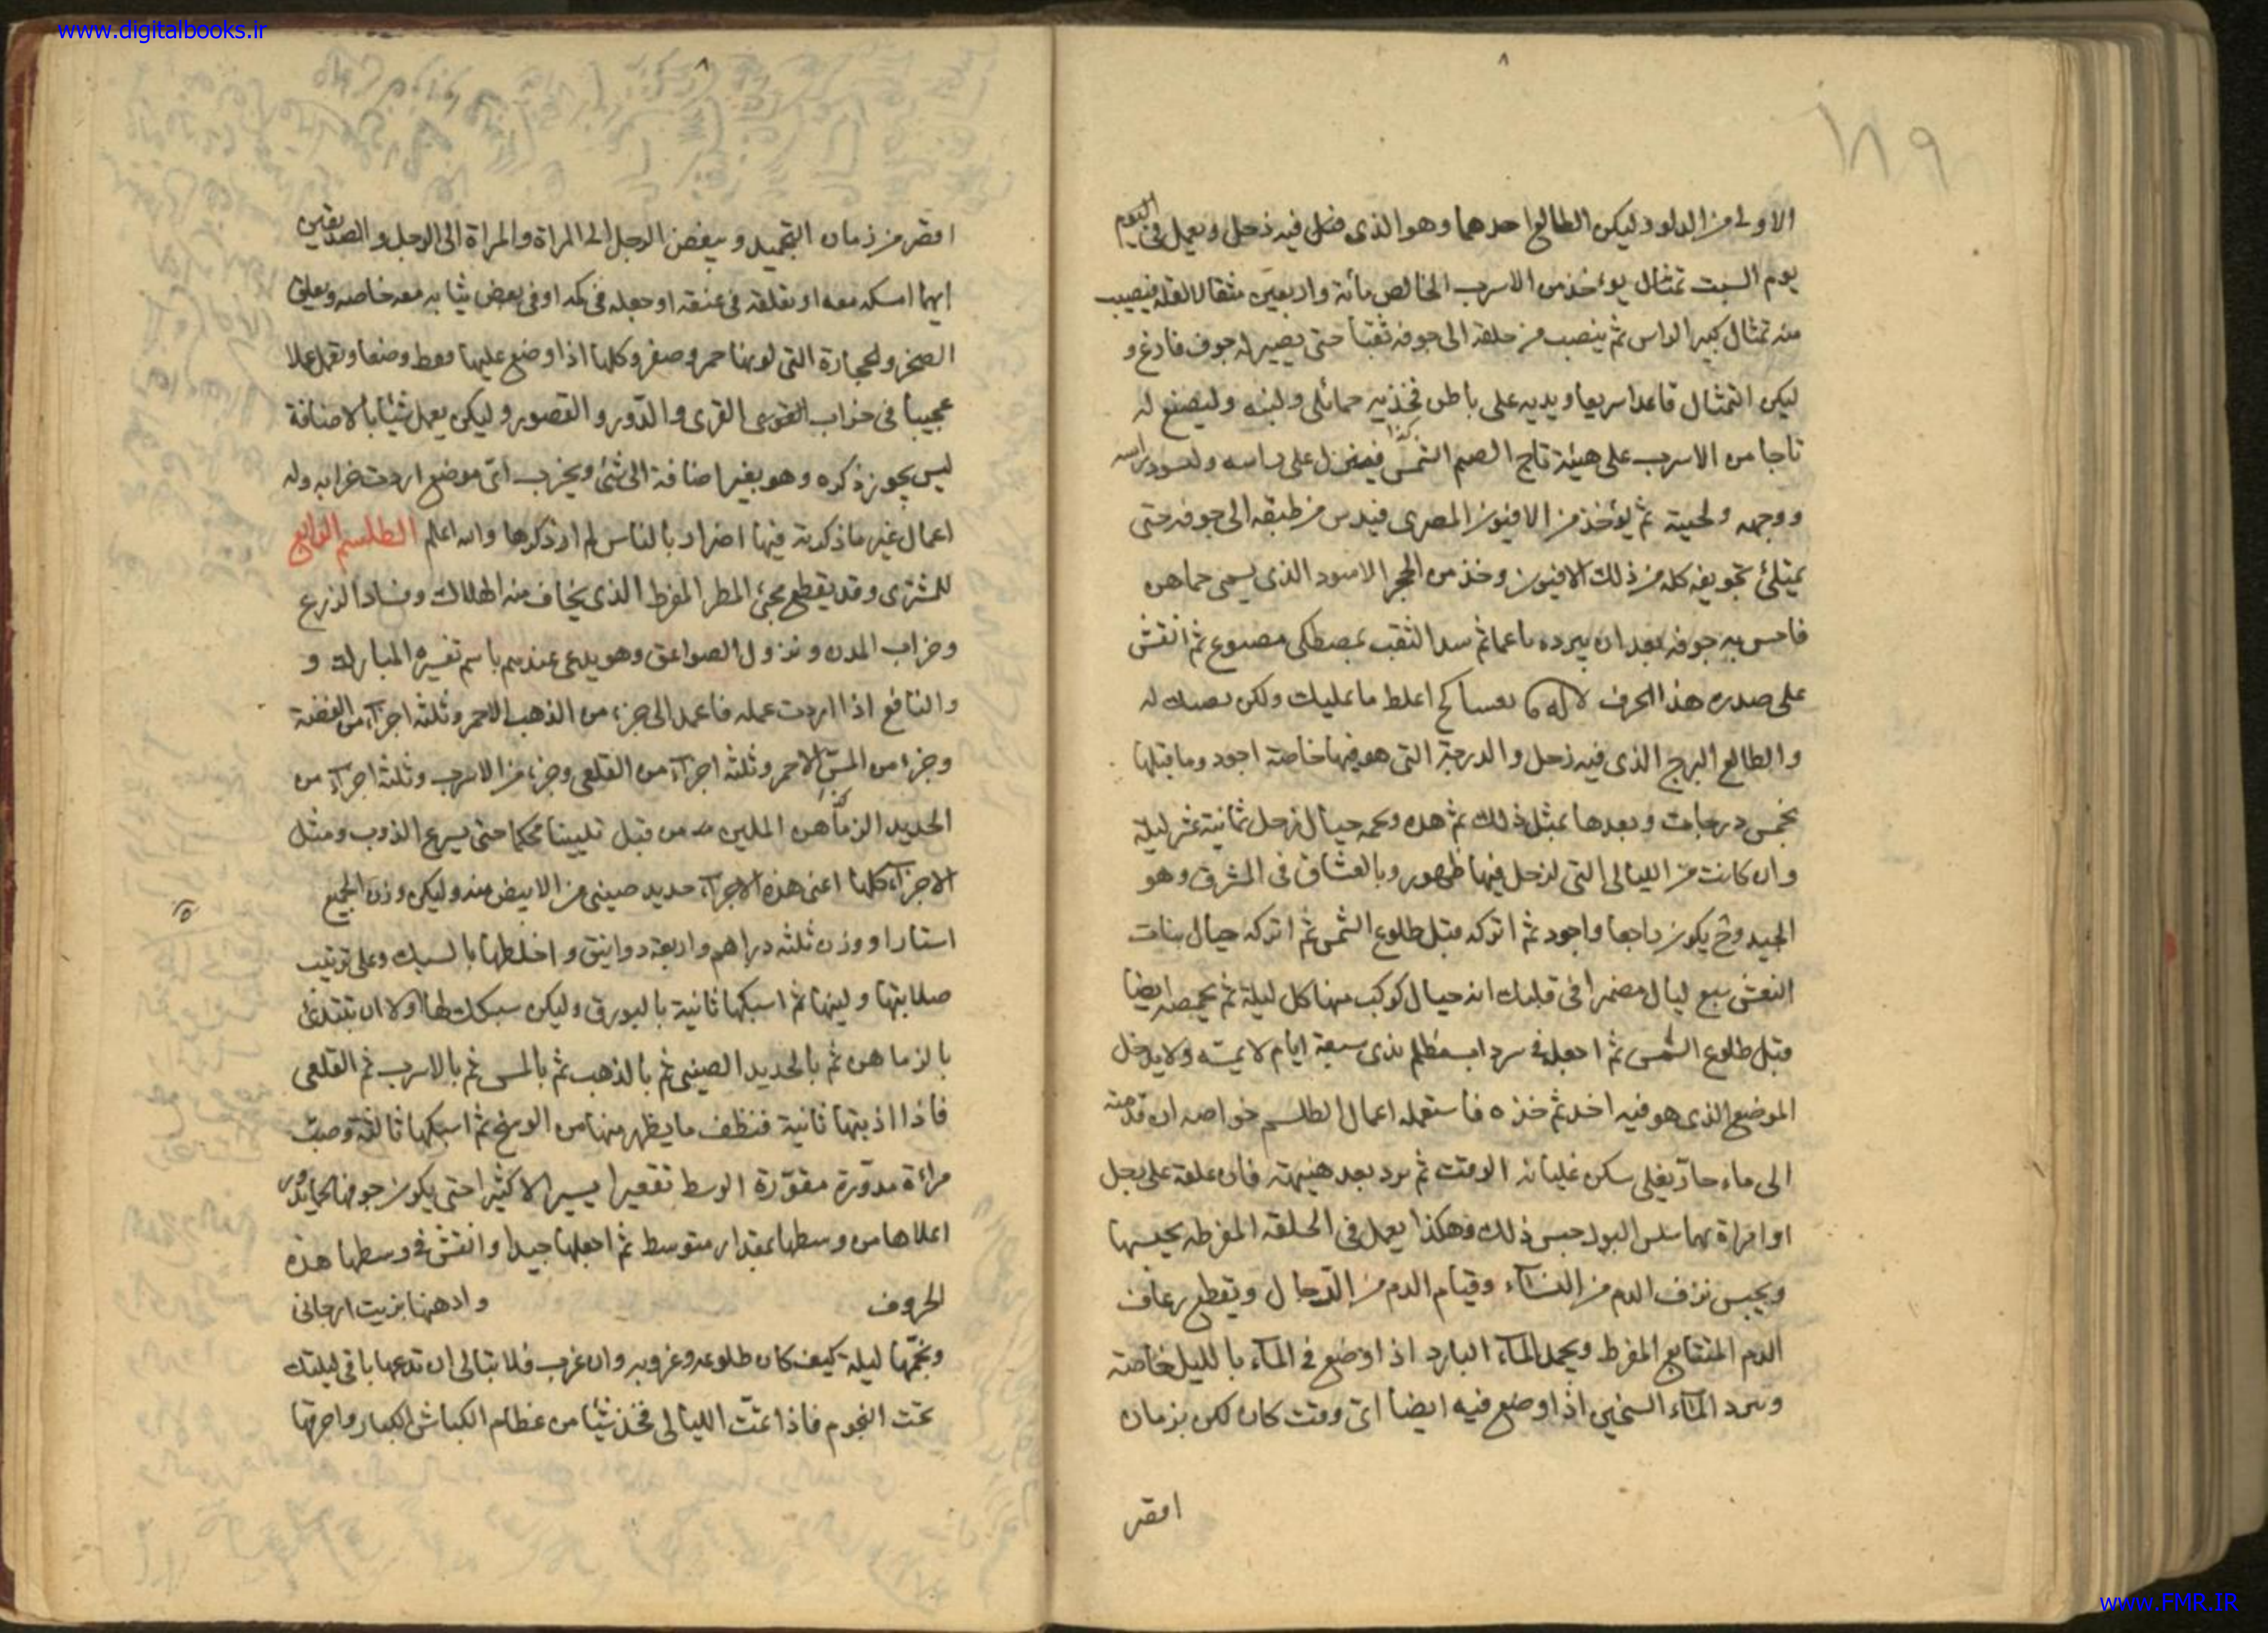 www.digitalbooks.ir
۸
۱۸۹
الاولى من الدلو وليكن الطالع احدهما وهو الذى فيه زحل ويعمل فى اليوم
يوم السبت تمثال يؤخذ من الاسرب الخالص مأتة واربعين مثقالا فيصب
منه تمثال كبير الراس ثم ينصب من حلقه الى جوفه ثقبا حتى يصير له جوف فارغ و
ليكن التمثال قاعدا سريعا ويديه على باطن فخذيه وليصنع له
تاجا من الاسرب على هيئة تاج الصنم الشمس فينزل على راسه
ووجهه ولحيته ثم يؤخذ من الافيون المصرى فيدس من طبقه الى جوفه حتى
يمتلئ تجويفه كله من ذلك الافيون وخذ من الحجر الاسود الذى يسمى حماهن
جوفه بعد ان يبرده ناعما ثم سد الثقب بمصطكى مصنوع ثم انقش
على صدره هذا الحرف ما عليك ولكن
والطالع البرج الذى فيه زحل والدرجة التى هو فيها خاصة اجود وما قبلها
بخمس درجات وبعدها بمثل ذلك ثم حيال زحل ثمانية عشر ليلة
وان كانت من الليالى التى لزحل فيها ظهور وبالعشاق فى المشرق وهو
الجيد وح يكون راجعا واجود ثم اتركه قبل طلوع الشمس ثم اتركه حيال بنات
النعش سبع ليال مضمرا فى قلبك انه حيال كوكب منها كل ليلة ثم ايضا
قبل طلوع الشمس ثم اجعله فى سرداب مظلم ندى سبعة ايام لا يمسه ولا يدخل
الموضع الذى هو فيه احد ثم خذه فاستعمله اعمال الطلسم خواصه ان قدمته
الى ماء حار يغلى سكن غليانه الوقت ثم برد بعد هنيهة فان علقه على رجل
او امراة بهما سلس البول حبس ذلك وهكذا يعمل فى الحلقة المفرطه يحبسها
ويحبس نزف الدم من النساء وقيام الدم من الرجال ويقطع رعاف
الدم المتتابع المفرط ويجمد الماء البارد اذا وضع فى الماء بالليل خاصة
ويبرد الماء السخين اذا وضع فيه ايضا اى وقت كان لكن بزمان
اقصر
۸
اقصر من زمان التجميد ويبغض الرجل الى المراة والمراة الى الرجل والصديقين
ايهما امسكه معه او تعلقه فى عنقه او جعله فى كمه او فى بعض ثيابه معه خاصه
الصخر والحجارة التى لونها حمر وصفر وكلها اذا وضع عليها وتعمل عملا
عجيبا فى خراب القوى القرى والدور والقصور وليكن يعمل شيئا بالاضافة
ليس يجوز ذكره وهو بغير اضافة الى شئ ويخرب اى موضع اردت خرابه وله
اعمال غير ما ذكرته فيها اضرار بالناس لم ار ذكرها والله اعلم الطلسم الرابع
للمشترى وقد يقطع مجئ المطر المفرط الذى يخاف منه الهلاك وفساد الزرع
وخراب المدن ونزول الصواعق وهو يدعى عندهم باسم تفسيره المبارك و
والنافع اذا اردت عمله فاعمد الى جزء من الذهب الاحمر وثلثة اجزآء من الفضة
وجزء من المس الاحمر وثلثة اجزآء من القلعى وجزء من الاسرب وثلثة اجزآء من
الحديد الزماهن الملين من قبل تليينا محكما حتى يسرع الذوب ومثل
الاجزآء كلها اعنى هذه الاجزآء حديد صينى من الابيض منه وليكن وزن الجميع
استارا ووزن ثلثه دراهم واربعة دوانيق واخلطها بالسبك وعلى ترتيب
صلابتها ولينها ثم اسبكها ثانية بالبورق وليكن سبكك لها اولا ان تبتدئ
بالزماهن ثم بالحديد الصينى ثم بالذهب ثم بالمس ثم بالاسرب ثم القلعى
فاذا اذبتها ثانية فنظف ما يظهر منها من الوسخ ثم اسبكها ثالثة وصب
مرآة مدورة مقورة الوسط تقعيرا يسيرا لا كثيرا حتى يكون جوفها
اعلاها من وسطها بمقدار متوسط ثم اجعلها جيدا وانقش فى وسطها هذه
الحروف وادهنها بزيت ارجانى
ونجمها ليلة كيف كان طلوعه وغروبه وان غرب فلا تبالى ان تدعها باقى ليلتك
تحت النجوم فاذا تمت الليالى فخذ شيئا من عظام الكباش الكبار واحرقها
www.FMR.IR